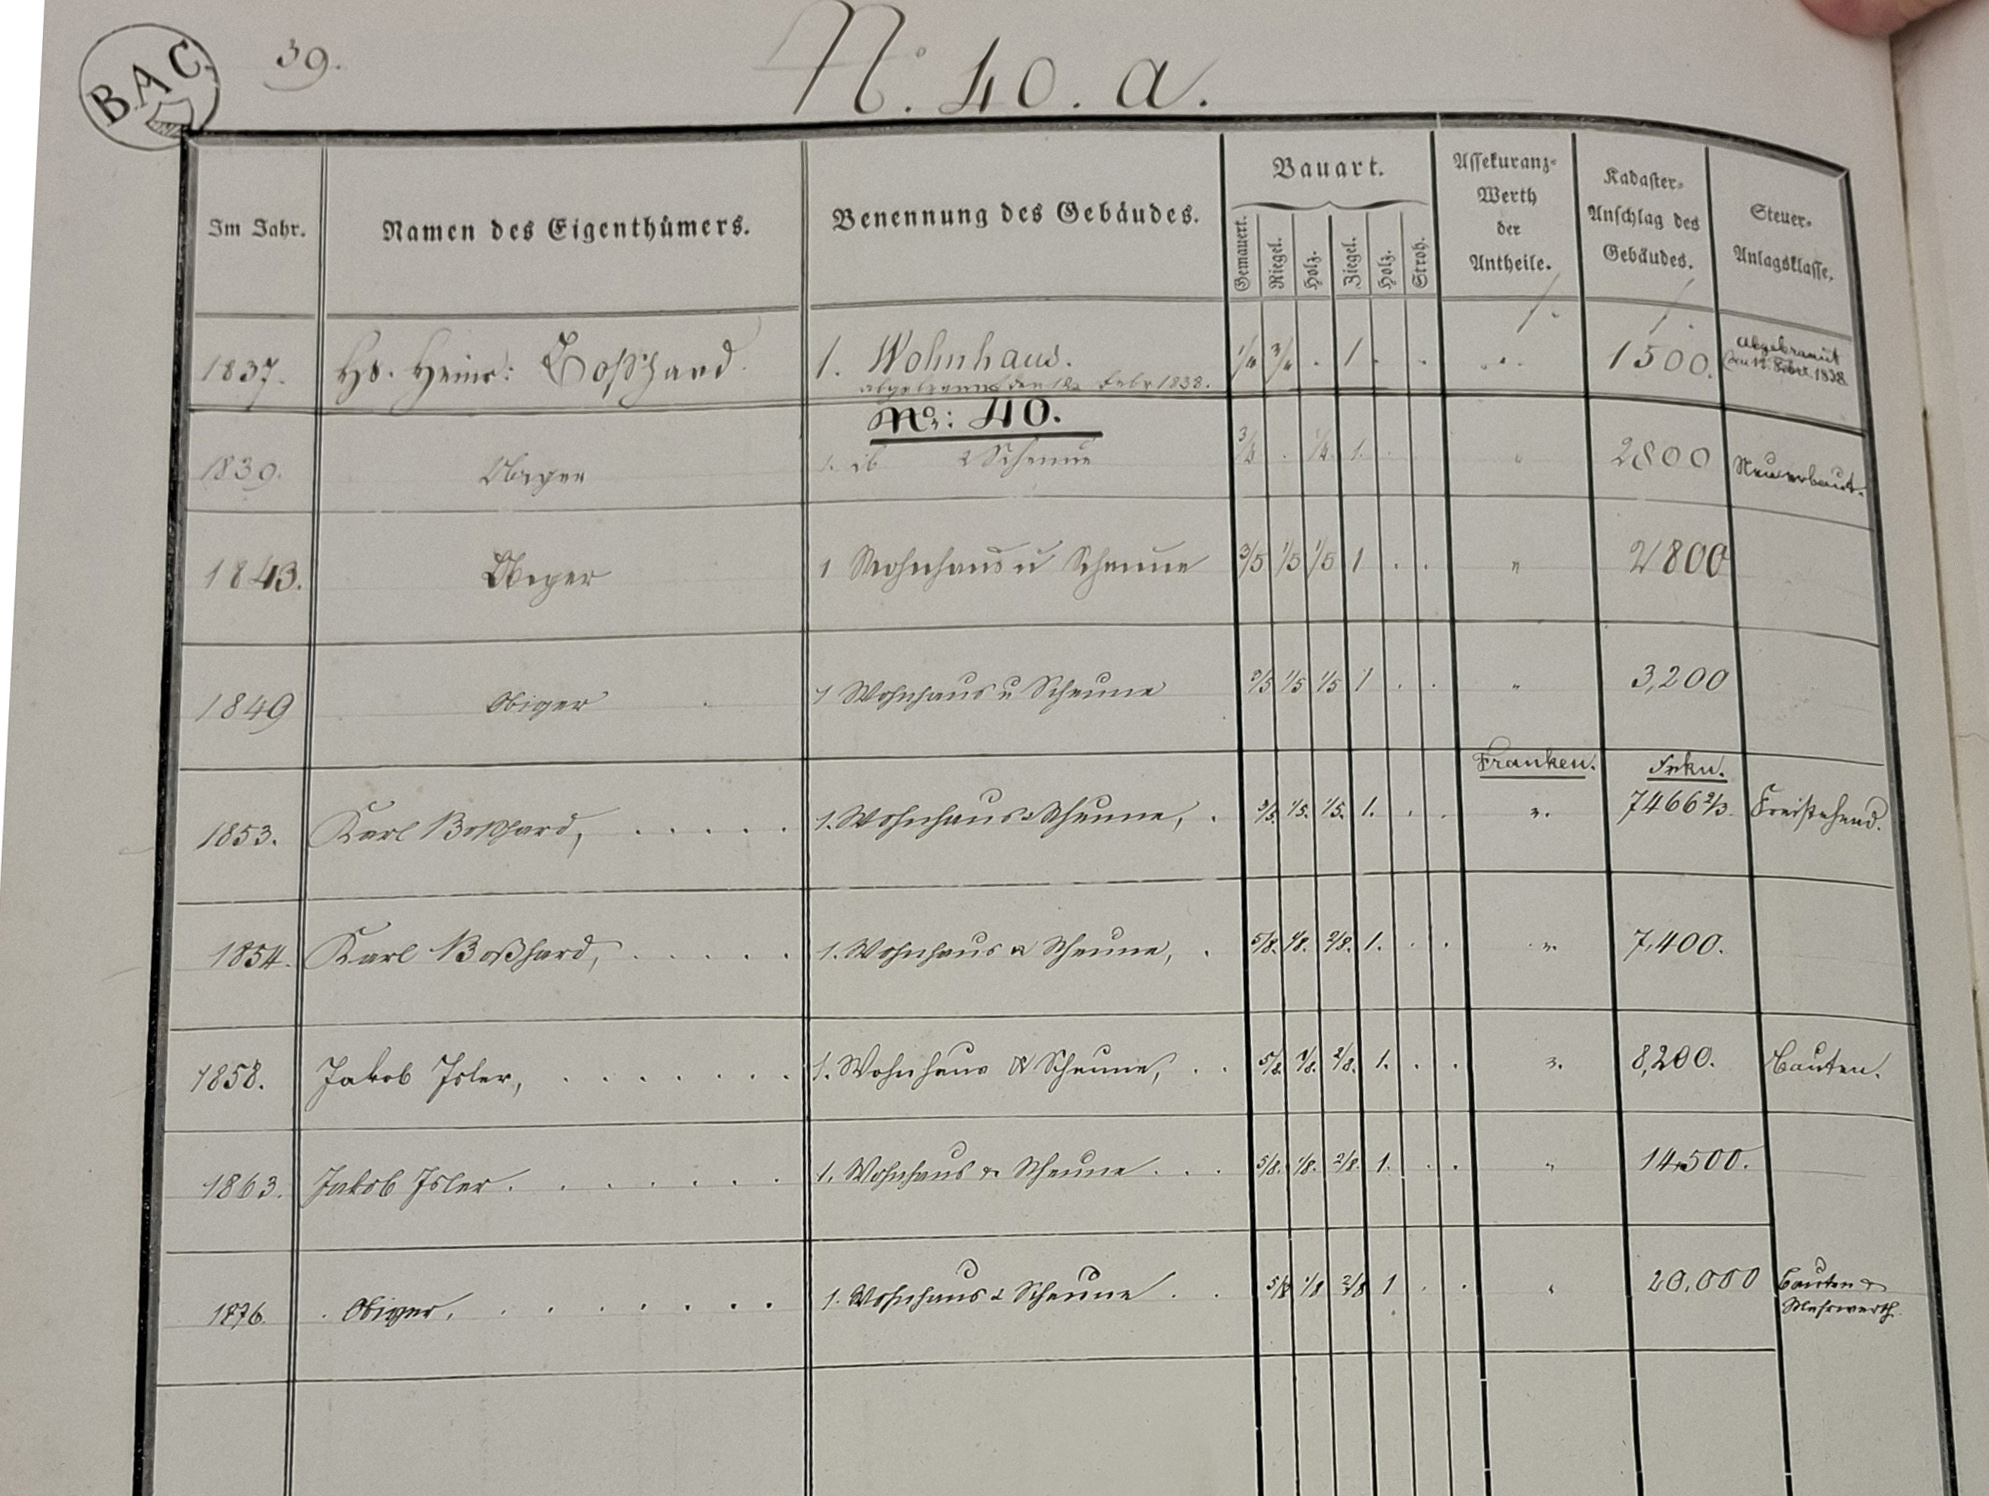 BAC.
39.
No. 40. a.
Im Jahr.
Namen des Eigenthümers.
Benennung des Gebäudes.
Bauart.
Gemauert.
Riegel.
Holz.
Ziegel.
Holz.
Stroh.
Assekuranz-
Werth
der
Antheile.
Kadaster-
Anschlag des
Gebäudes.
Steuer-
Anlagsklasse.
1837. Hs. Heinr: Boßhard. 1. Wohnhaus. 1/4 3/4 . 1 . . " . 1500. abgebrannt
abgebrannt den 12. Febr 1838. den 12. Febr. 1838
No: 40.
1839. Obiger 1. ib & Scheune 3/4 . 1/4 1. . " 2800 Neu erbaut.
1843. Obiger 1 Wohnhaus u Scheune 3/5 1/5 1/5 1 . . " 2800
1849 Obiger 1 Wohnhaus u Scheune 3/5 1/5 1/5 1 . . " 3,200
Franken. Frkn.
1853. Karl Boßhard, . . . . . 1. Wohnhaus & Scheune, . 3/5. 1/5. 1/5. 1. . . ". 7466 2/3. Freistehend.
1854. Karl Boßhard, . . . . . 1. Wohnhaus & Scheune, . 5/8. 1/8. 2/8. 1. . . " 7,400.
1858. Jakob Isler, . . . . . . . 1. Wohnhaus & Scheune, . . 5/8. 1/8. 2/8. 1. . . ". 8,200. Bauten.
1863. Jakob Isler . . . . . . . 1. Wohnhaus & Scheune . . . 5/8. 1/8. 2/8. 1. . . " 14,500.
1876. Obiger, . . . . . . . 1. Wohnhaus & Scheune . . 5/8 1/8 2/8 1 . . " 20,000 Bauten &
Mehrwerth.